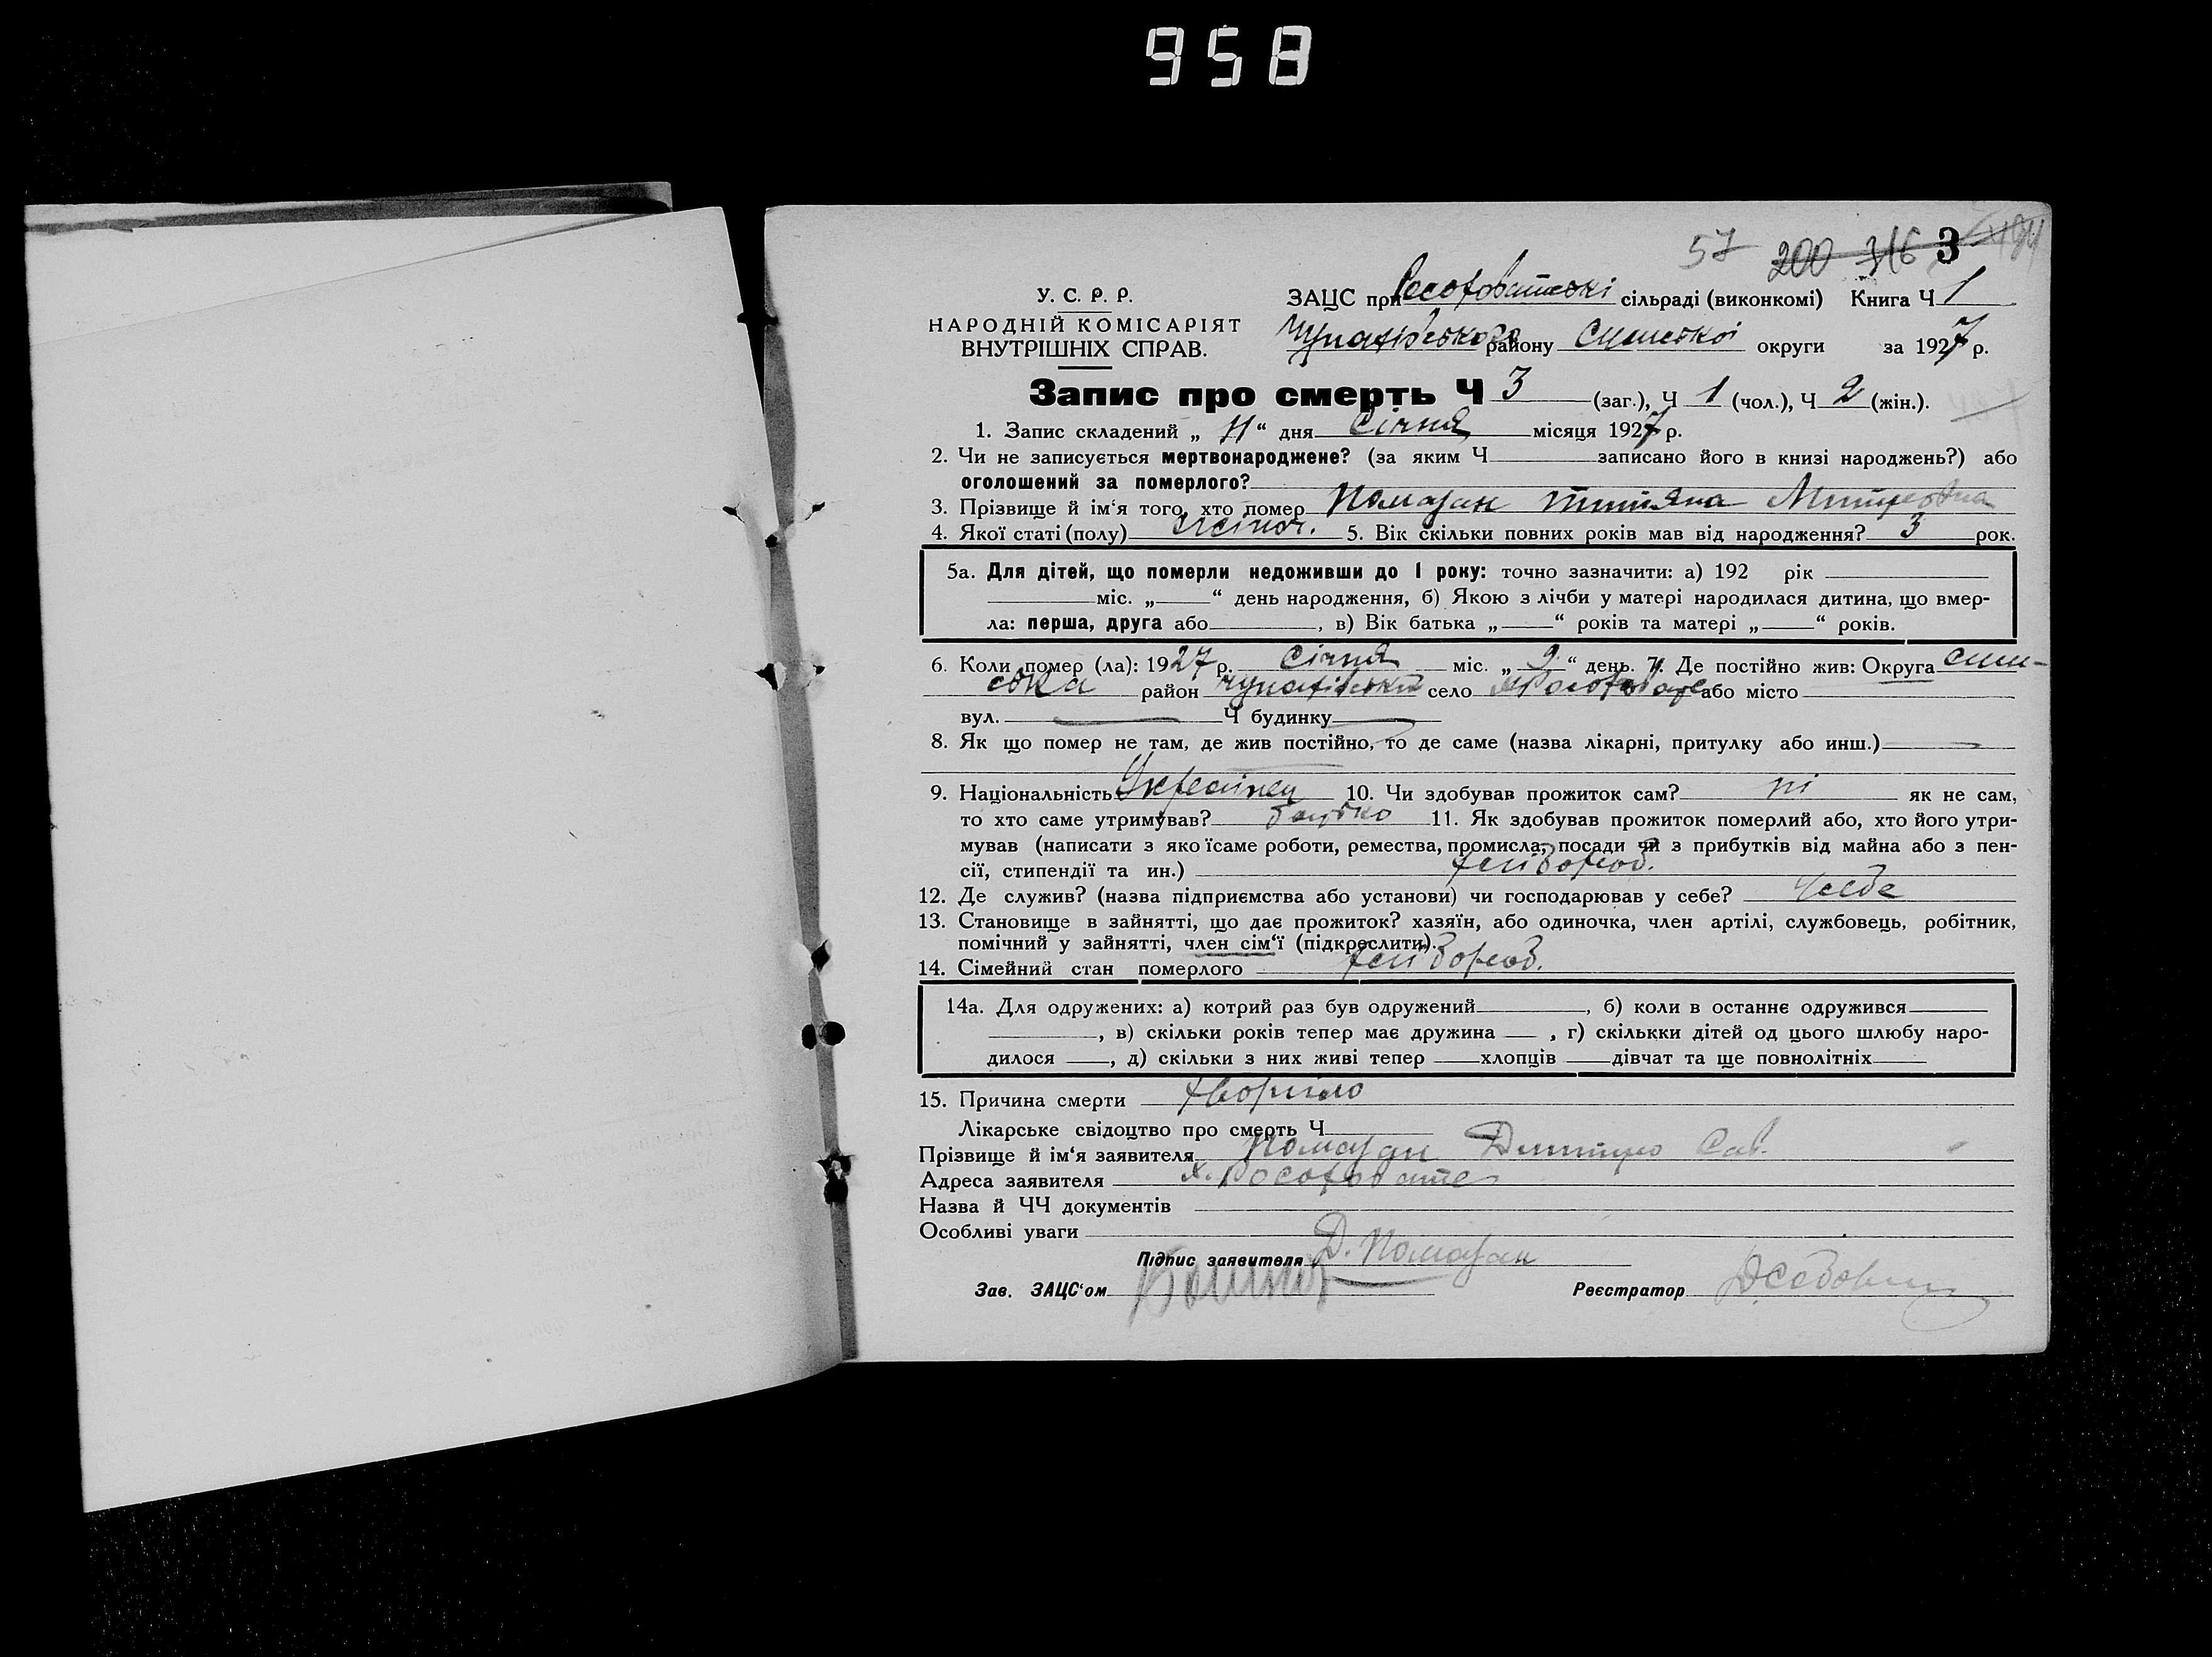 958
57 200 316 3
У. С. Р. Р.
НАРОДНІЙ КОМІСАРІЯТ
ВНУТРІШНІХ СПРАВ.
ЗАЦС при сільраді (виконкомі) Книга Ч 1
Чупахівського району Сумської округи за 1927 р.
Запис про смерть Ч 3 (заг.), Ч 1 (чол.), Ч 2 (жін.).
1. Запис складений „ 11 “ дня Січня місяця 1927 р.
2. Чи не записується мертвонароджене? (за яким Ч записано його в книзі народжень?) або
оголошений за померлого?
3. Прізвище й ім‘я того, хто помер Помазан Митровна
4. Якої статі (полу) жіноч. 5. Вік скільки повних років мав від народження? 3 рок.
5а. Для дітей, що померли недоживши до 1 року: точно зазначити: а) 192 рік
міс. „ “ день народження, б) Якою з лічби у матері народилася дитина, що вмер-
ла: перша, друга або , в) Вік батька „ “ років та матері „ “ років.
6. Коли помер (ла): 1927 р. Січня міс. „ 9 “ день. 7. Де постійно жив: Округа Сум-
ська район Чупахівський село або місто
вул. Ч будинку
8. Як що помер не там, де жив постійно, то де саме (назва лікарні, притулку або инш.)
9. Національність Українец 10. Чи здобував прожиток сам? ні як не сам,
то хто саме утримував? батько 11. Як здобував прожиток померлий або, хто його утри-
мував (написати з яко їсаме роботи, ремества, промисла, посади чи з прибутків від майна або з пен-
сії, стипендії та ин.) хлібороб.
12. Де служив? (назва підприємства або установи) чи господарював у себе? У себе
13. Становище в зайнятті, що дає прожиток? хазяїн, або одиночка, член артілі, службовець, робітник,
помічний у зайнятті, член сім‘ї (підкреслити).
14. Сімейний стан померлого хлібороб.
14а. Для одружених: а) котрий раз був одружений , б) коли в останнє одружився
, в) скільки років тепер має дружина , г) скількки дітей од цього шлюбу наро-
дилося , д) скільки з них живі тепер хлопців дівчат та ще повнолітніх
15. Причина смерти хворіло
Лікарське свідоцтво про смерть Ч
Прізвище й ім‘я заявителя Помазан Дмитро Сав.
Адреса заявителя х. Росоховате
Назва й ЧЧ документів
Особливі уваги
Підпис заявителя Д. Помазан
Зав. ЗАЦС‘ом
Реєстратор